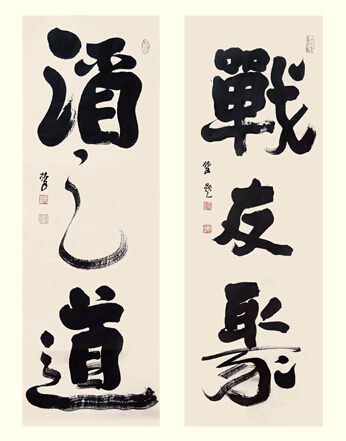 戰友聚
酒之道